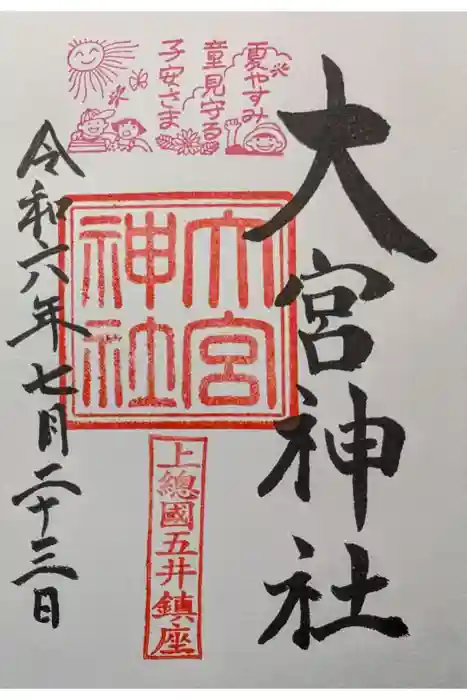 大宮神社
夏やすみ
童見守る
子安さま
大宮
神社
上總國五井鎮座
令和六年七月二十三日